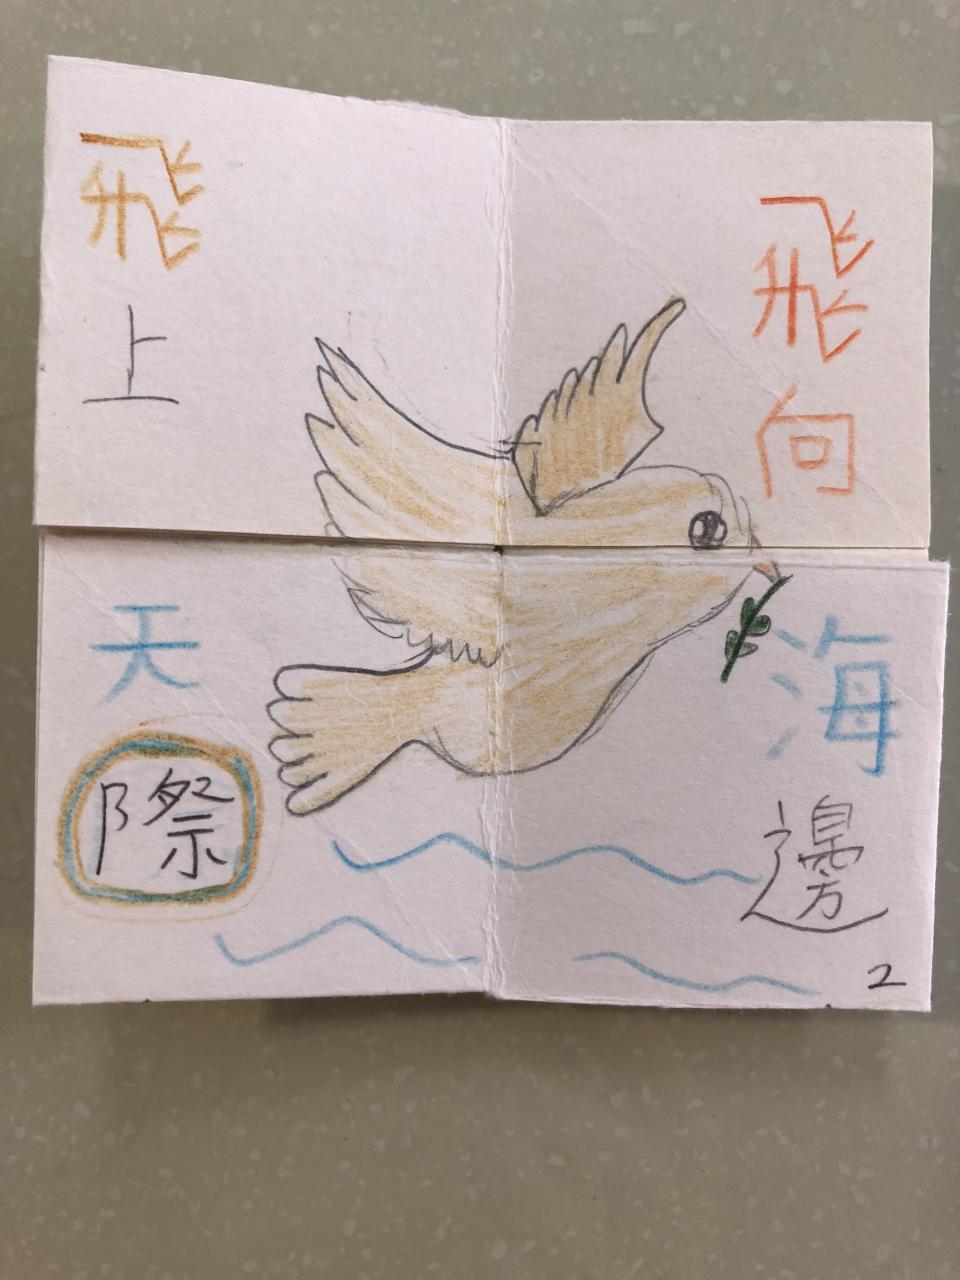 飛向
海邊
飛上
天際
2